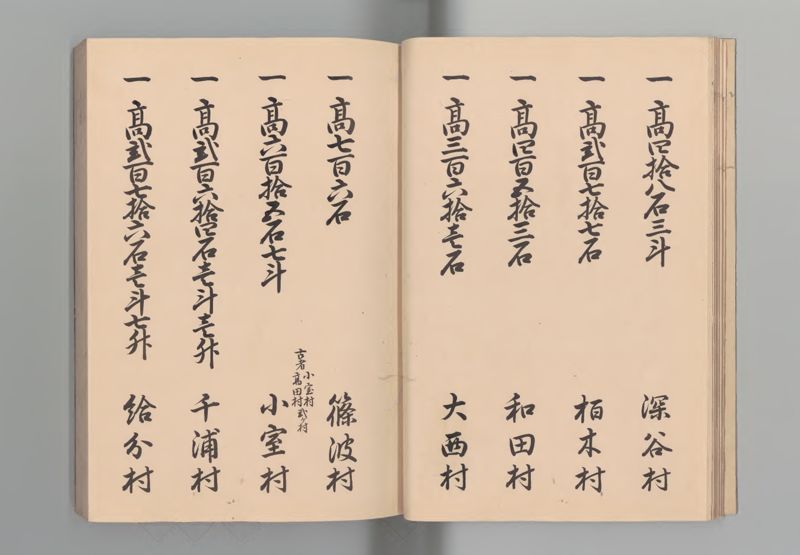 一高四拾八石三斗 深谷村
一高弐百七拾七石 栢木村
一高四百五拾三石 和田村
一高三百六拾壱石 大西村
一高七百六石 篠波村
古者小室村
高田村弐ケ村
一高六百拾五石七斗 小室村
一高弐百六拾四石壱斗壱升 千浦村
一高弐百七拾六石壱斗七升 給分村